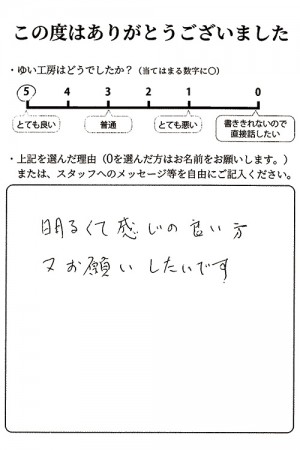 この度はありがとうございました
・ゆい工房はどうでしたか？（当てはまる数字に○）
5 4 3 2 1 0
とても良い 普通 とても悪い 書ききれないので直接話したい
・上記を選んだ理由（0を選んだ方はお名前をお願いします。）
または、スタッフへのメッセージ等を自由にご記入ください。
明るくて感じの良い方
又お願いしたいです